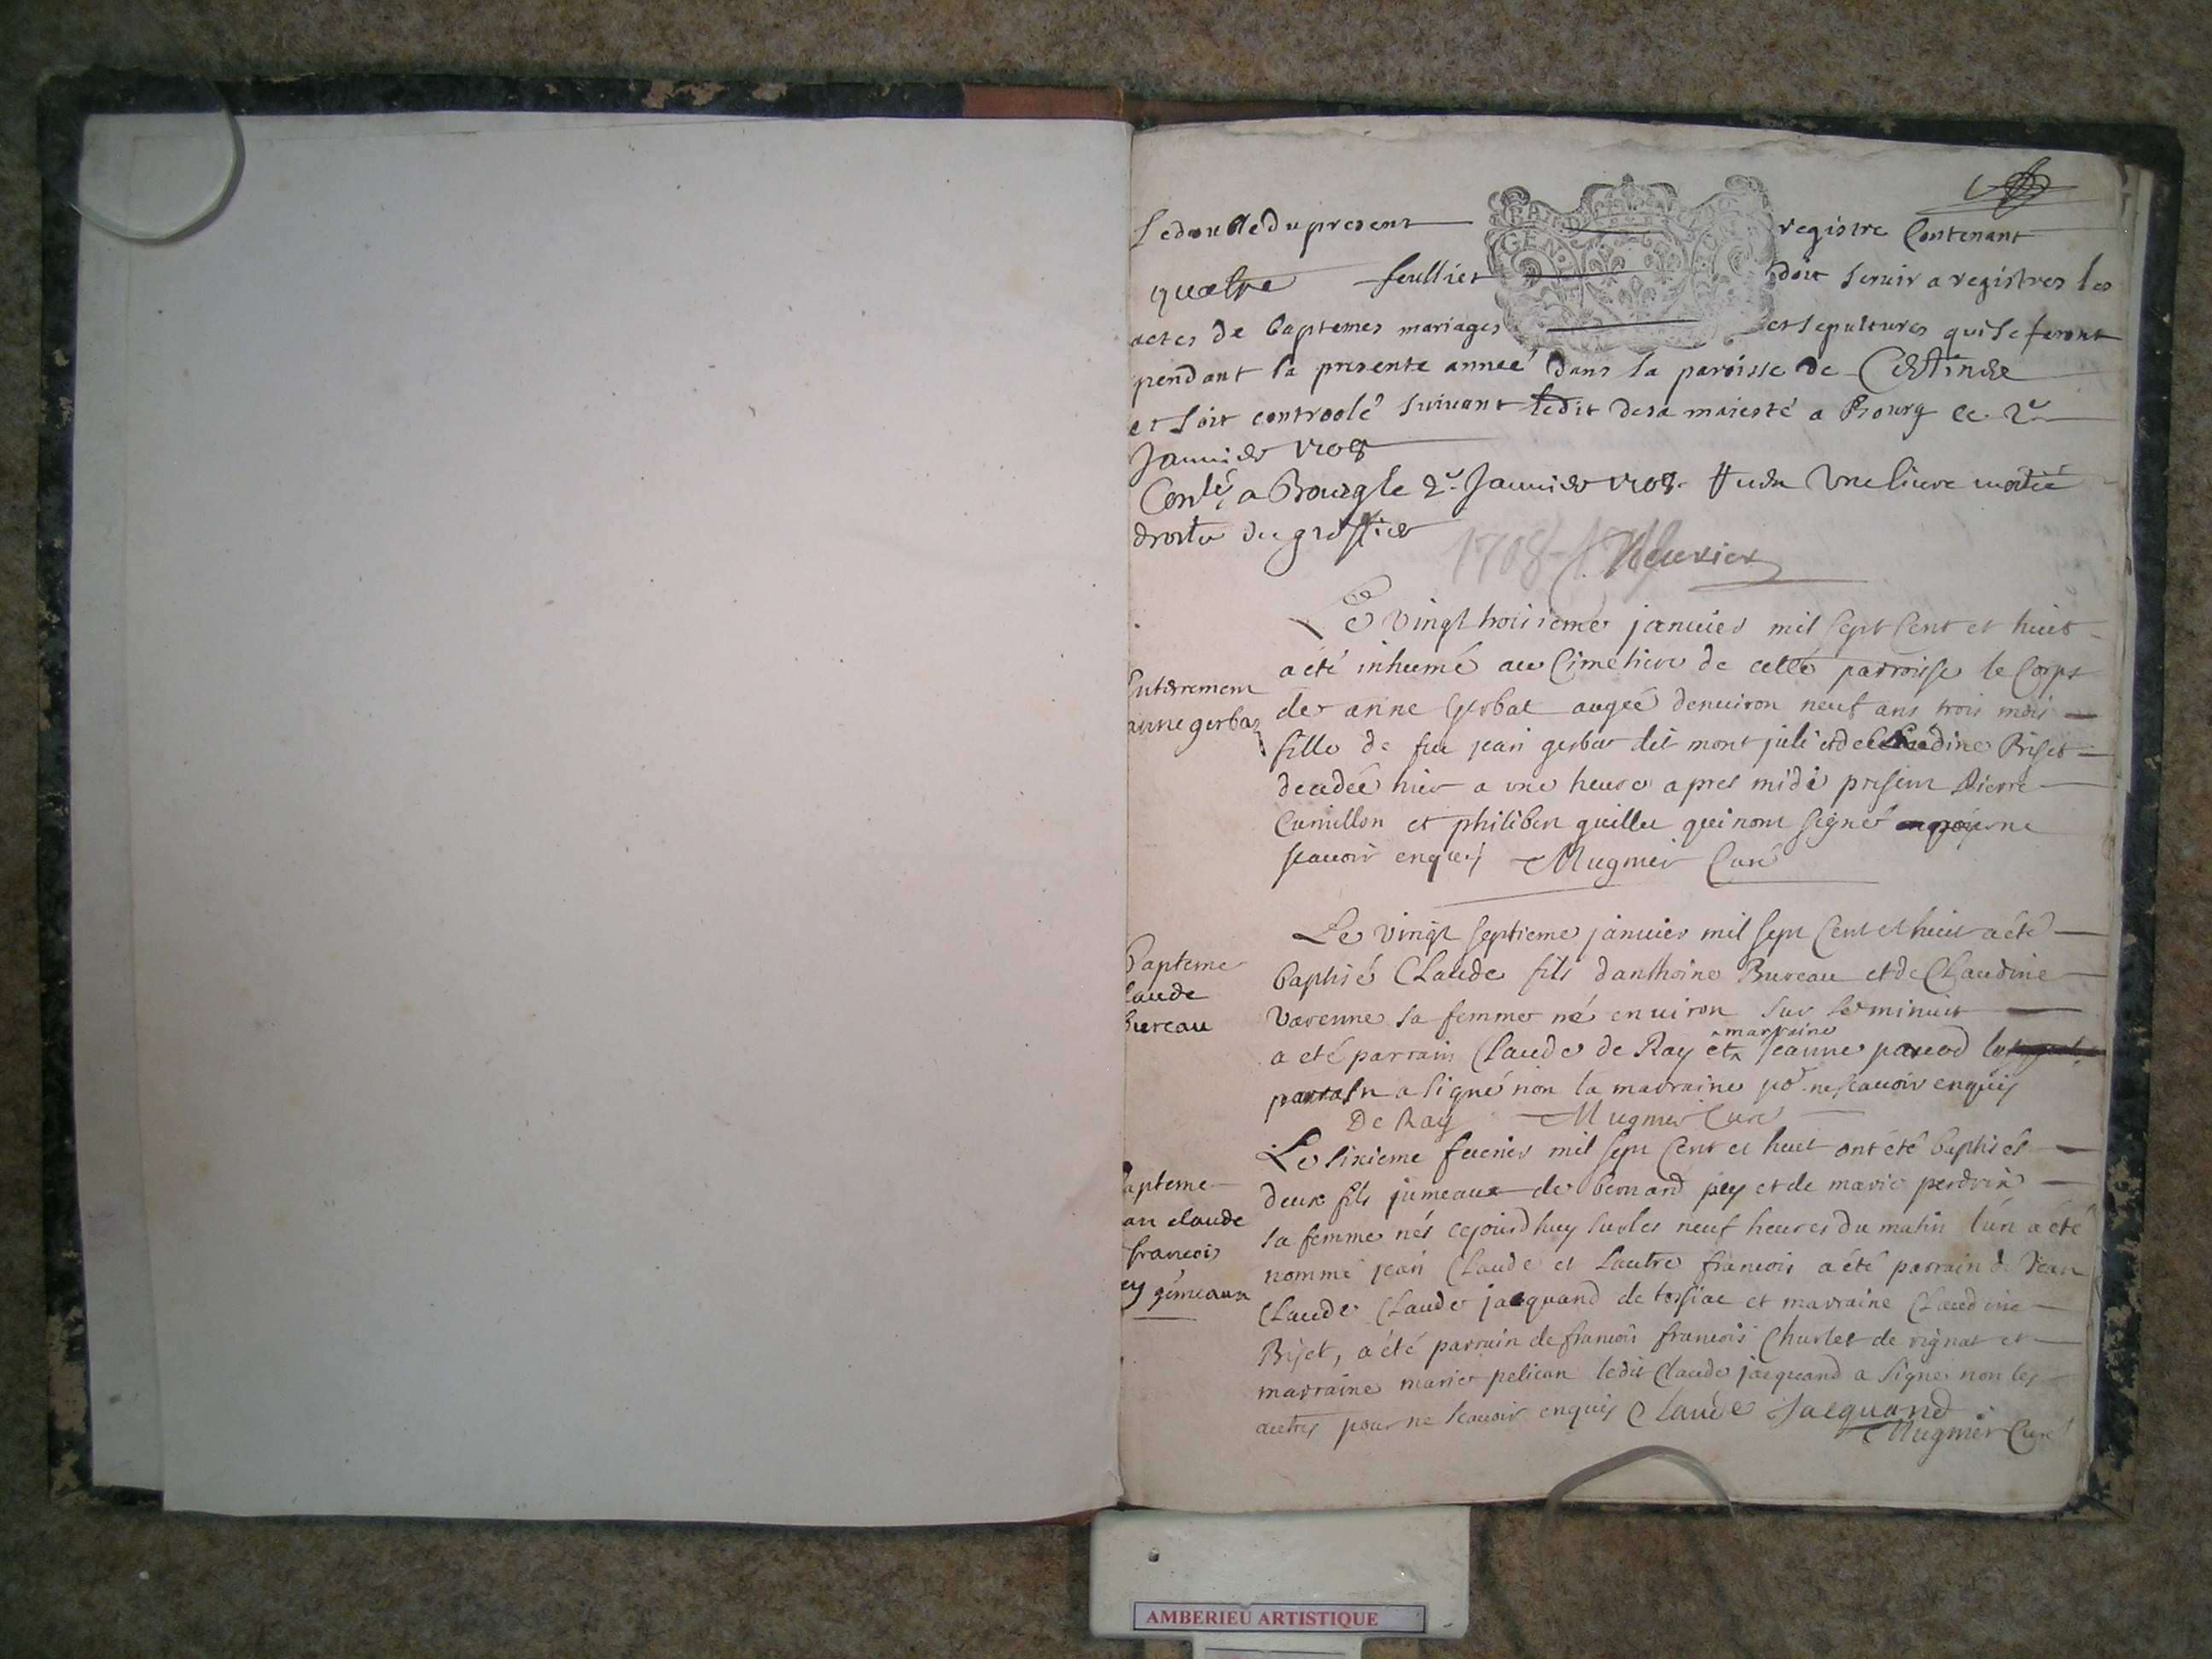 Le double du present registre Contenant
quatre feulliet doit servir a registrer les
actes de baptemes mariages et sepultures qui se feront
pendant la presente anneé dans la paroisse de
et soit controolé suivant ledit de sa maiesté a Bourg ce 2e
Januier 1708
Conlé a Bourg le 2e Januier 1708 une liure moitié
droits du greffier
1708
Le vingt troisieme januier mil sept Cent et huit
a été inhumé au Cimetiere de cette parroisse le Corps
de anne Gerbat augeé denuiron neuf ans trois mois
fille de feu jean gerbat dit mont juli et de Claudine Briset
decedeé hier a une heure apres midi present Pierre
Cumillon et philibert guillu qui nont signé ne
scauoir enquis Mugmier Curé
Enterrement
anne gerbaz
Le vingt septieme januier mil sept Cent et huit a été
baptisé Claude fils danthoine Bureau et de Claudine
Varenne sa femme né enuiron sur le minuit
a eté parrain Claude de Ray et marraine jeanne
parrain a signé non la marraine por ne scauoir enquis
De Ray Mugmier Curé
Bapteme
Claude
Bureau
Le sixieme feurier mil sept Cent et huit ont été baptisés
deux fils jumeaux de bernard pey et de marie perdrix
sa femme nés cejourdhuy sur les neuf heures du matin lun a été
nommé jean Claude et lautre francois a été parrain d. Jean
Claude Claude jacquand de tossiac et marraine Claudine
Briset, a été parrain de francois francois Charlet de rignat et
marraine marie pelican ledit Claude jacquand a signé non les
autres pour ne scauoir enquis Claude Jacquand
Mugmier Curé
apteme
an claude
francois
ey gémeaux
AMBERIEU ARTISTIQUE